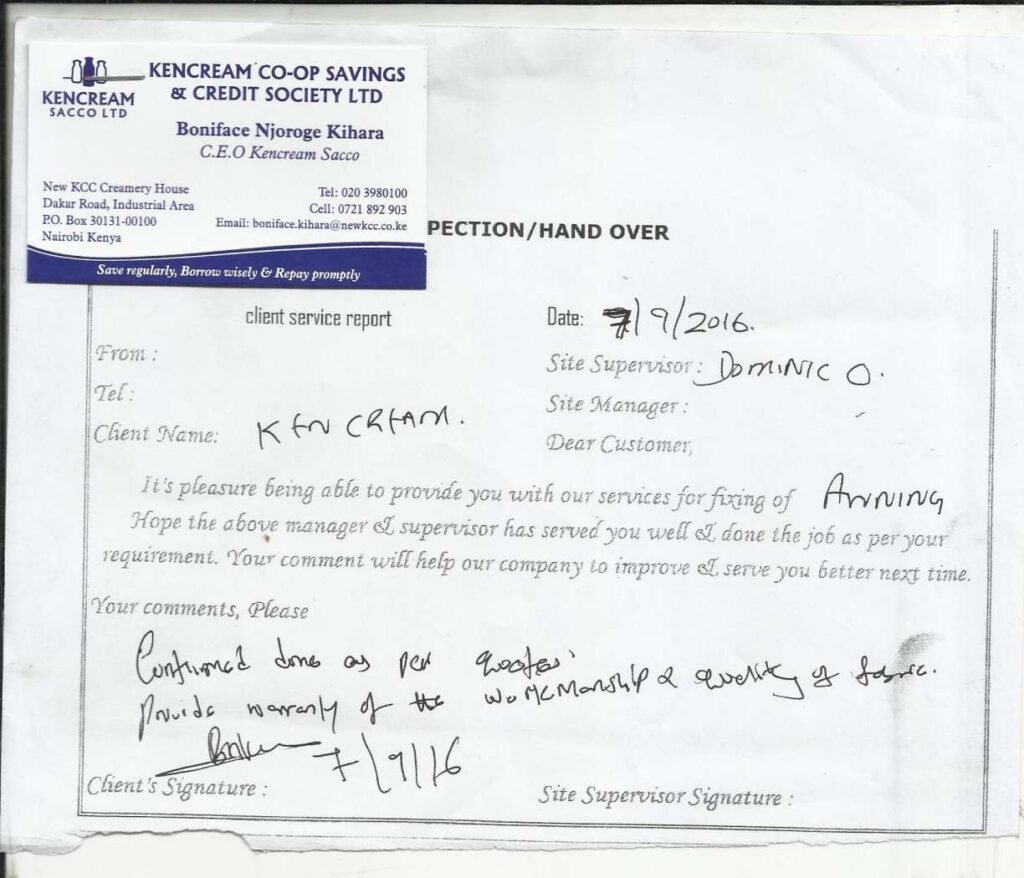 KENCREAM
SACCO LTD
KENCREAM CO-OP SAVINGS
& CREDIT SOCIETY LTD
Boniface Njoroge Kihara
C.E.O Kencream Sacco
New KCC Creamery House
Dakar Road, Industrial Area
P.O. Box 30131-00100
Nairobi Kenya
Tel: 020 3980100
Cell: 0721 892 903
Email: boniface.kihara@newkcc.co.ke
Save regularly, Borrow wisely & Repay promptly
PECTION/HAND OVER
client service report
Date: 7/9/2016.
From :
Site Supervisor: DOMINIC O.
Tel:
Site Manager :
Client Name: KEN CREAM.
Dear Customer,
It's pleasure being able to provide you with our services for fixing of AWNING
Hope the above manager & supervisor has served you well & done the job as per your
requirement. Your comment will help our company to improve & serve you better next time.
Your comments, Please
Confirmed done as per quotes.
Provide warranty of the workmanship & quality of fabric.
7/9/16
Client's Signature :
Site Supervisor Signature :